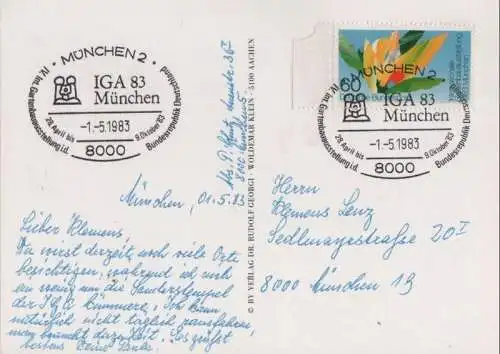 MÜNCHEN 2
IV. Int. Gartenbauausstellung i.d. Bundesrepublik Deutschland
IGA 83
München
28. April bis 9. Oktober 83
-1.-5.1983
8000
60
MÜNCHEN 2
IV. Int. Gartenbauausstellung i.d. Bundesrepublik Deutschland
IGA 83
München
28. April bis 9. Oktober 83
-1.-5.1983
8000
© BY VERLAG DR. RUDOLF GEORGI · WOLDEMAR KLEIN · 5100 AACHEN
München, 01.5.83
Lieber Klemens,
Du wirst derzeit noch viele Orte
besichtigen, während ich mich
um die Sonderstempel
der IGA kümmere. Ich kann
natürlich nicht täglich rausfahren
man braucht dazu Zeit. Es grüßt
bestens Deine
Herrn
Klemens Lenz
Sedlmayrstraße 20 I
8000 München 19